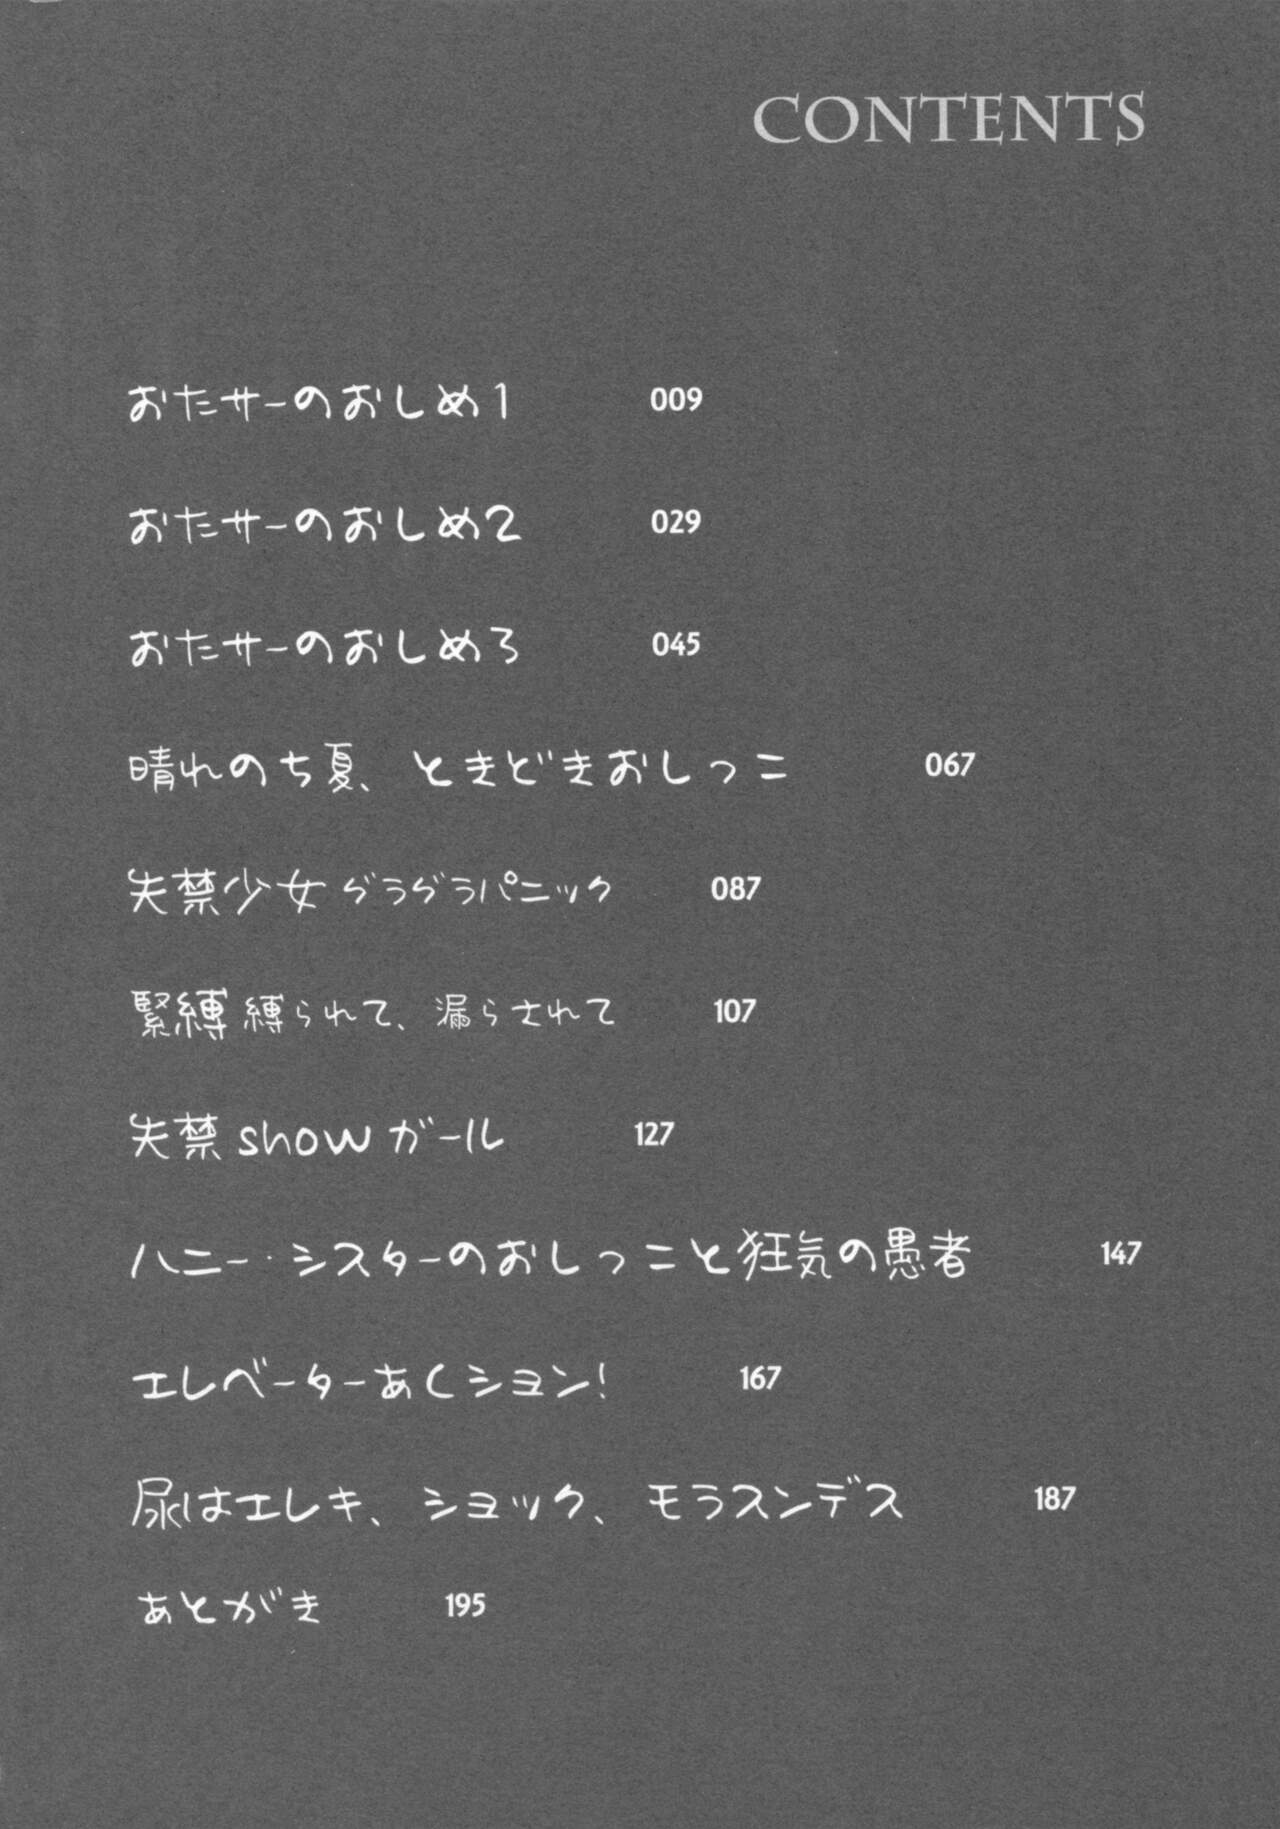 CONTENTS
おたサーのおしめ1 009
おたサーのおしめ2 029
おたサーのおしめ3 045
晴れのち夏、ときどきおしっこ 067
失禁少女グラグラパニック 087
緊縛 縛られて、漏らされて 107
失禁showガール 127
ハニー・シスターのおしっこと狂気の愚者 147
エレベーターあくション! 167
尿はエレキ、ショック、モラスンデス 187
あとがき 195